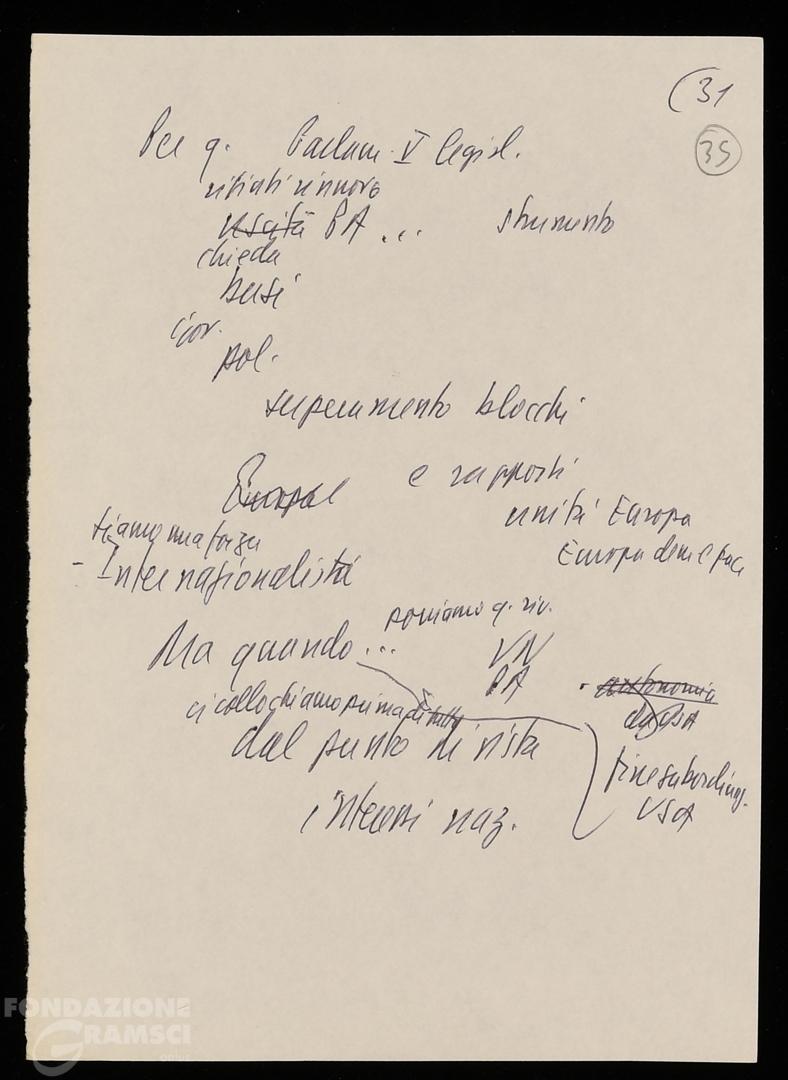 (31
35
Per q. Parlam. V legisl.
rifiuti rinnovo
uscita PA ... strumento
chieda
basi
gov.
pol.
superamento blocchi
Europa e rapporti
unità Europa
siamo una forza Europa dem e pace
- Internazionalista
poniamo q. riv.
Ma quando ... VN
PA
autonomia
ci collochiamo prima di tutto da USA
dal punto di vista
fine subordinaz.
interessi naz. USA
FONDAZIONE
GRAMSCI
onlus